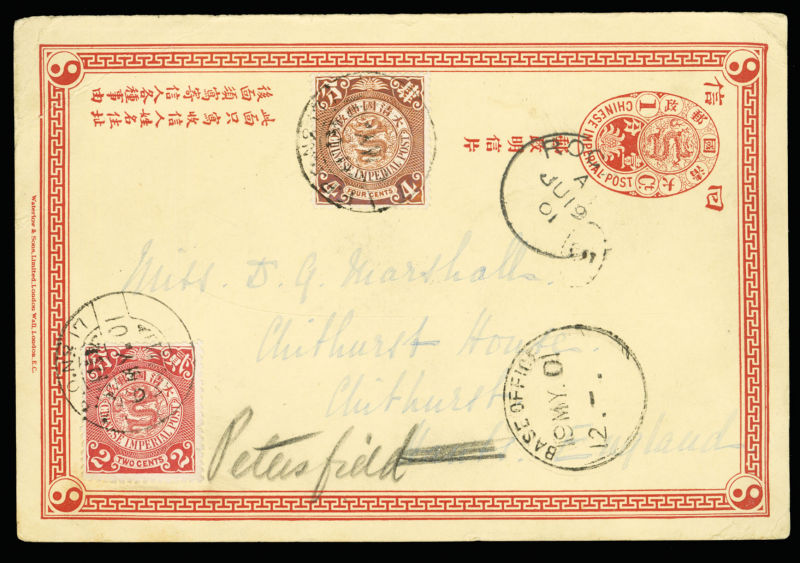 此面只寫收信人姓名住址
後面須寫寄信人各種事由
肆 分
大清國郵政
CHINESE IMPERIAL POST
4 4
FOUR CENTS
郵政明信片
大清國郵政
CHINESE IMPERIAL POST
1
壹分
1 Ct
信
回
A
JU 19
01
Miss D. G. Marshall.
Chithurst House.
Chithurst
England
Petersfield
BASE OFFICE
19 MY. 01
12.-.
大清國郵政
CHINESE IMPERIAL POST
2 2
TWO CENTS
Waterlow & Sons, Limited, London Wall, London, E.C.